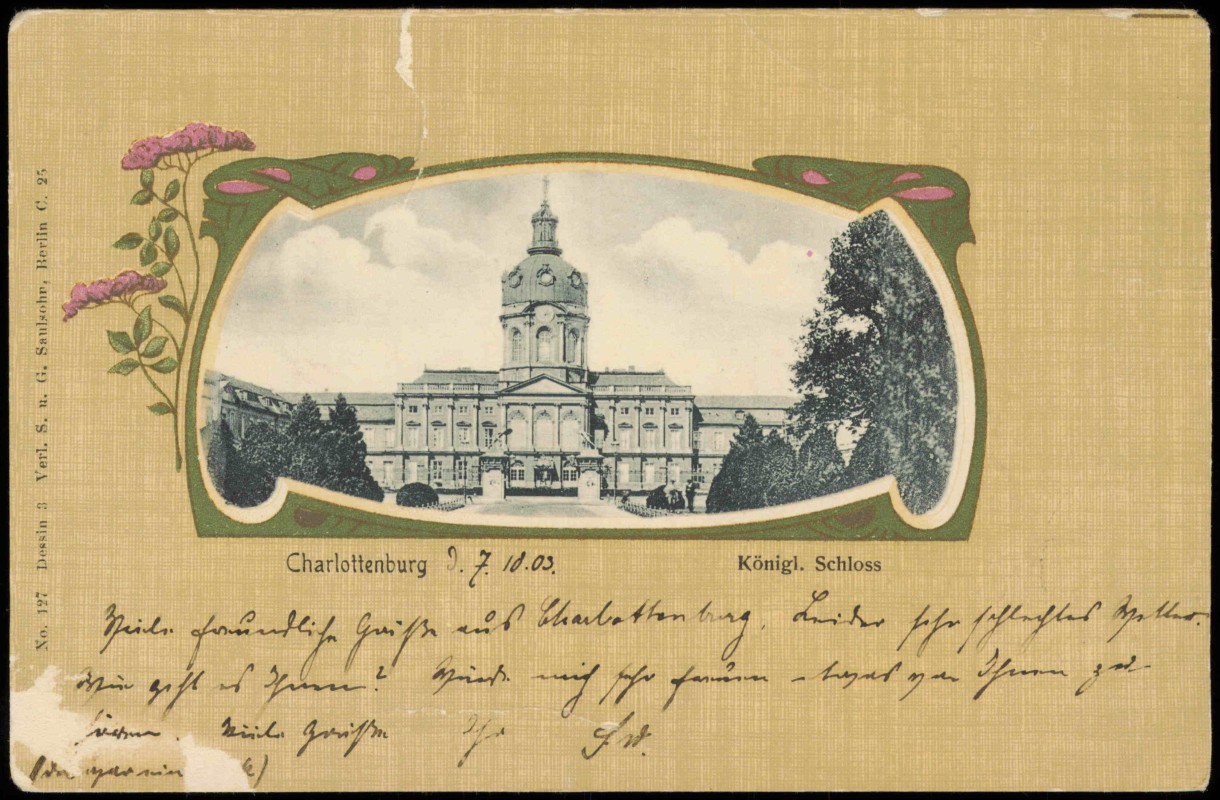 No. 127 Dessin 3 Verl. S. u. G. Saulsohn, Berlin C. 25
Charlottenburg d. 7. 10. 03.
Königl. Schloss
Viele freundliche Grüße aus Charlottenburg. Leider sehr schlechtes Wetter.
Wie geht es Ihnen? Würde mich sehr freuen etwas von Ihnen zu
hören. Viele Grüße Ihr
(da war ein